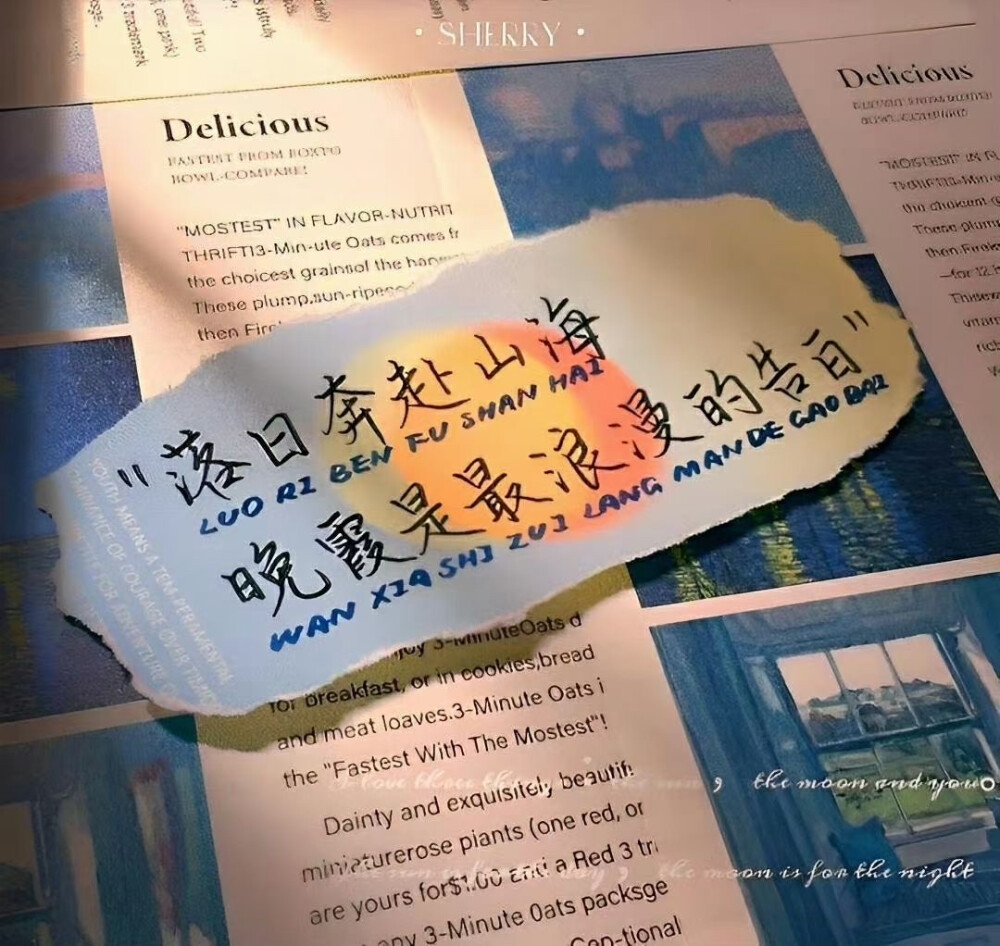 • SHERRY •
Delicious
FASTEST FROM BOXTO
BOWL-COMPARE!
"MOSTEST" IN FLAVOR-NUTRIT
THRIFT!3-Min-ute Oats comes fr
the choicest grainsof the
These plump,sun-ripe
then Fire
Delicious
"MOSTEST" IN FL
THRIFT!3-Min
the choicest
These plump
then Fire
"落日奔赴山海
LUO RI BEN FU SHAN HAI
晚霞是最浪漫的告白"
WAN XIA SHI ZUI LANG MAN DE GAO BAI
YOUTH MEANS A TEMPERAMENTAL
OMINANCE OF COURAGE OVER TIMID
FOR ADVENTURE
joy 3-MinuteOats d
for breakfast, or in cookies,bread
and meat loaves.3-Minute Oats i
the "Fastest With The Mostest"!
Dainty and exquisitely beautif
miniaturerose piants (one red, or
are yours for$1.00 and a Red 3 tr
any 3-Minute Oats packsge
Con-tional
I love three things the sun , the moon and you
the sun is for the day , the moon is for the night